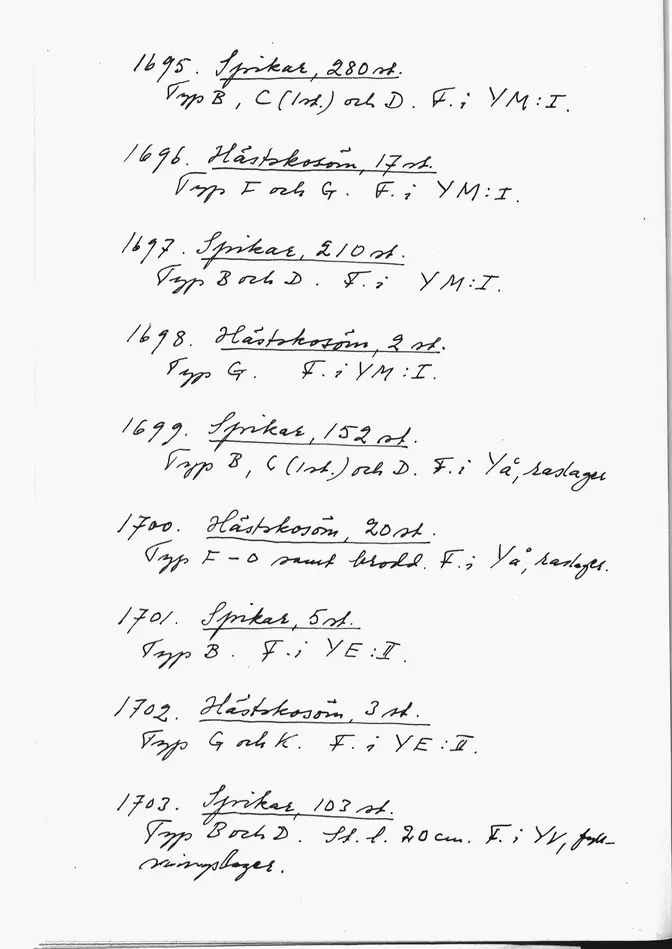 1695. Spikar, 280 st.
Typ B, C (1st.) och D. F. i YM:I.
1696. Hästskosöm, 17 st.
Typ F och G. F. i YM:I.
1697. Spikar, 210 st.
Typ B och D. F. i YM:I.
1698. Hästskosöm, 2 st.
Typ G. F. i YM:I.
1699. Spikar, 152 st.
Typ B, C (1st.) och D. F. i Yå, raslager
1700. Hästskosöm, 20 st.
Typ F-O samt brodd. F. i Yå, raslager.
1701. Spikar, 5 st.
Typ B. F. i YE:II.
1702. Hästskosöm, 3 st.
Typ G och K. F. i YE:II.
1703. Spikar, 103 st.
Typ B och D. St. l. 20 cm. F. i YV, fyll-
ningslager.